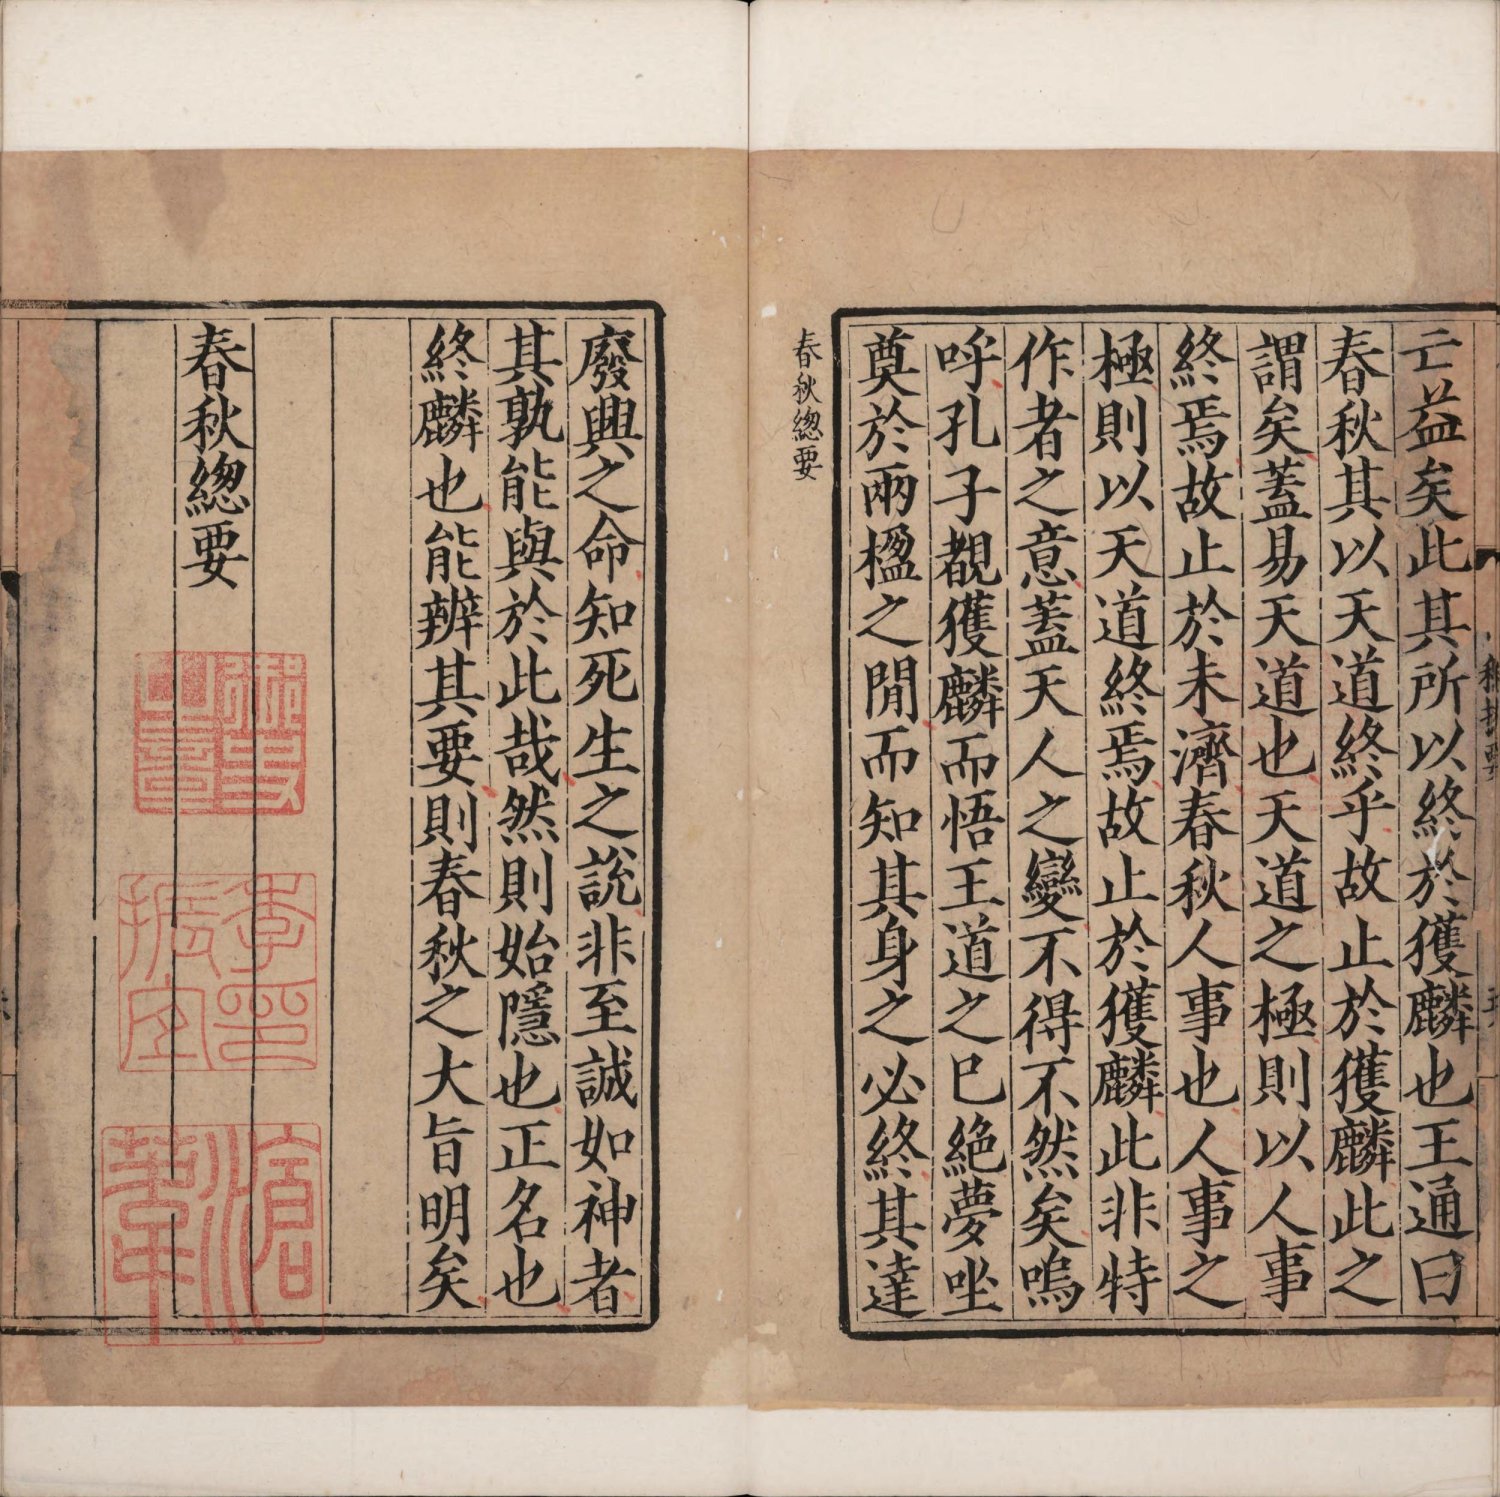 亡益矣此其所以終於獲麟也王通曰
春秋其以天道終乎故止於獲麟此之
謂矣蓋易天道也天道之極則以人事
終焉故止於未濟春秋人事也人事之
極則以天道終焉故止於獲麟此非特
作者之意蓋天人之變不得不然矣嗚
呼孔子覩獲麟而悟王道之已絶夢坐
奠於兩楹之閒而知其身之必終其達
春秋緫要
廢興之命知死生之說非至誠如神者
其孰能與於此哉然則始隱也正名也
終麟也能辨其要則春秋之大旨明矣
春秋緫要
季振宜印
滄葦